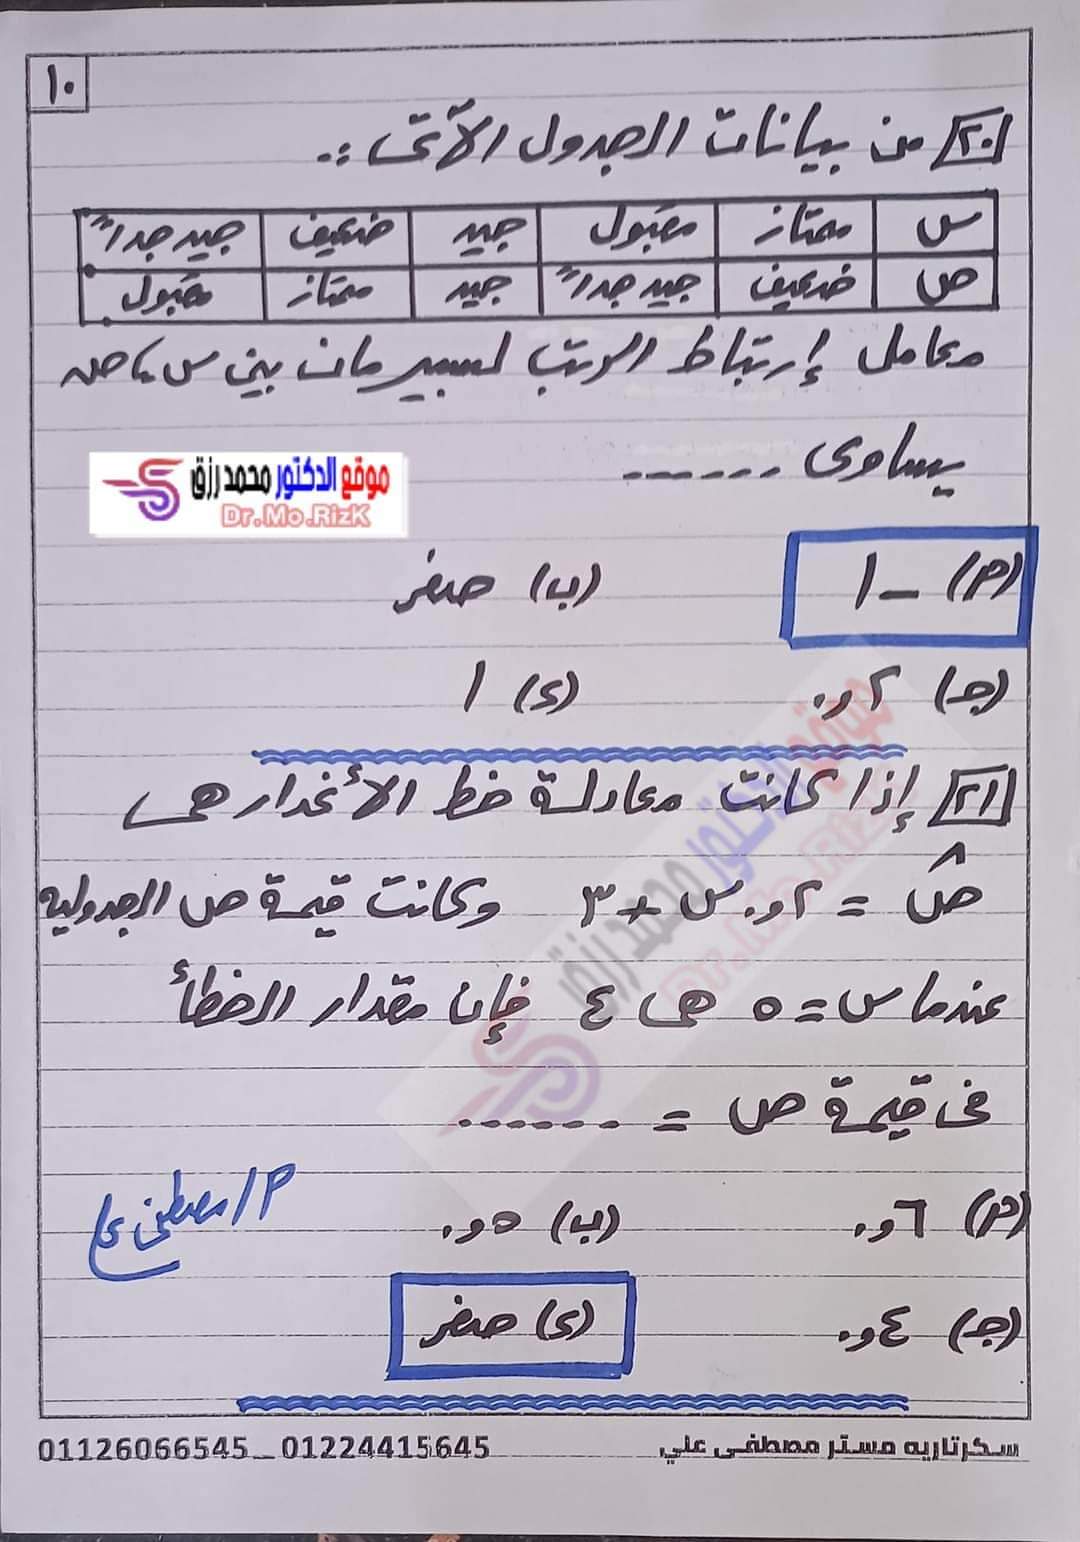 ١٠
٢٠ من بيانات الجدول الآتى :.
س ممتاز مقبول جيد ضعيف جيد جداً
ص ضعيف جيد جداً جيد ممتاز مقبول
معامل إرتباط الرتب لسبيرمان بين س ، ص
يساوى ......
موقع الدكتور محمد رزق
Dr.Mo.RizK
(م) -١ (ب) صفر
(جـ) ٢و. (ى) ١
٢١ إذا كانت معادلة خط الأنحدار هى
صَ^ = ٢و. س + ٣ وكانت قيمة ص الجدوليه
عندما س = ٥ هى ٤ فإن مقدار الخطأ
فى قيمة ص = ......
(م) ٦و. (ب) ٥و.
م/مصطفى على
(جـ) ٤و. (ى) صفر
سكرتاريه مستر مصطفى علي 01224415645 _ 01126066545
موقع الدكتور محمد رزق
Dr.Mo.RizK